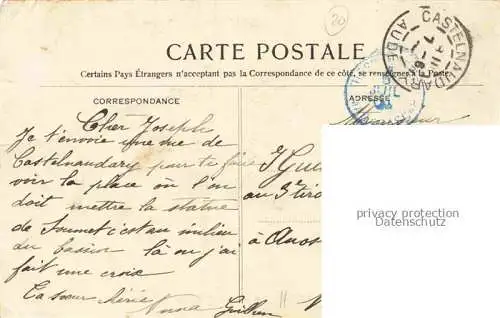 20
CASTELNAUDARY
AUDE
CARTE POSTALE
Certains Pays Étrangers n'acceptant pas la Correspondance de ce côté, se renseigner à la Poste
CORRESPONDANCE
ADRESSE
Monsieur
Cher Joseph
Je t'envoie une vue de
Castelnaudary pour te faire
voir la place où l'on
doit mettre la statue
de Soumet c'est au milieu
du bassin là où j'ai
fait une croix
Ta sœur
J Gui
au 3e tir
à
privacy protection
Datenschutz